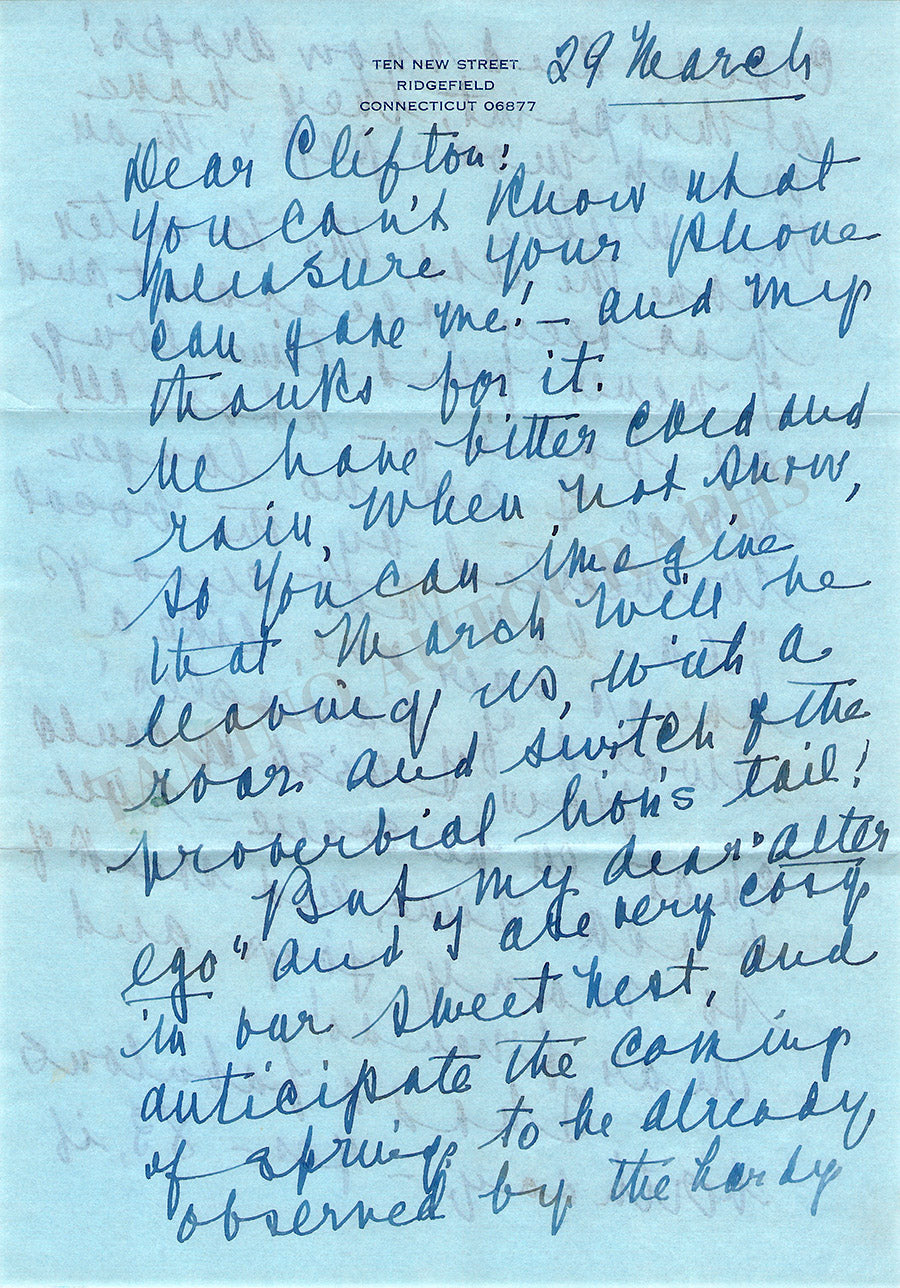 TEN NEW STREET
RIDGEFIELD
CONNECTICUT 06877
29 March
Dear Clifton:
You can't know what
pleasure your phone
call gave me! — and my
thanks for it.
We have bitter cold and
rain, when not snow,
so you can imagine
that March will be
leaving us, with a
roar and switch of the
proverbial lion's tail!
But my dear "alter
ego" and I are very cosy
in our sweet nest, and
anticipate the coming
of spring, to be already
observed by the hardy
TAMINO AUTOGRAPHS